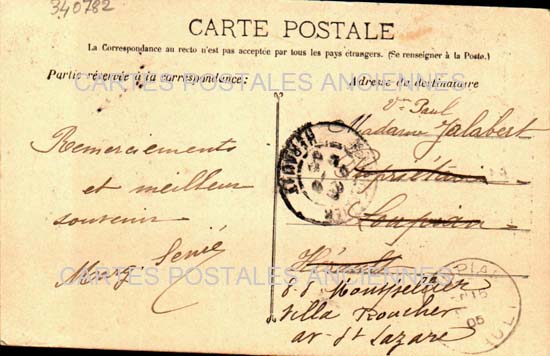 340782
CARTE POSTALE
La Correspondance au recto n'est pas acceptée par tous les pays étrangers. (Se renseigner à la Poste.)
Partie réservée à la correspondance:
Adresse du destinataire
CARTES POSTALES ANCIENNES
Remerciements
et meilleur
souvenir
Marg
Vve Paul
Madame Jalabert
Propriétaire
Loupian
Hérault
CARTES POSTALES ANCIENNES
Montpellier
Villa Roucher
av. St Lazare
HERAULT
05